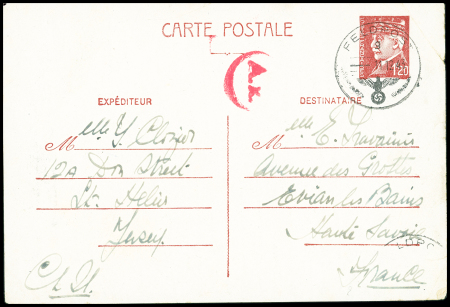 CARTE POSTALE
FELDPO
1,20
A.x
EXPÉDITEUR
Mlle Y. Clozier
12A Don Street
St. Hélier
Jersey
Ch. Is.
DESTINATAIRE
Mlle E.
Avenue des Grottes
Evian les Bains
Haute Savoie
France
LDPO